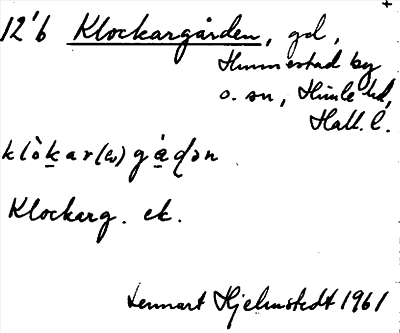 12'6 Klockargården, gd,
Hunnestad by
o. sn, Himle hd,
Hall. l.
klò̱kar(a)gá̱ḍən
Klockarg. ek.
Lennart Hjelmstedt 1961